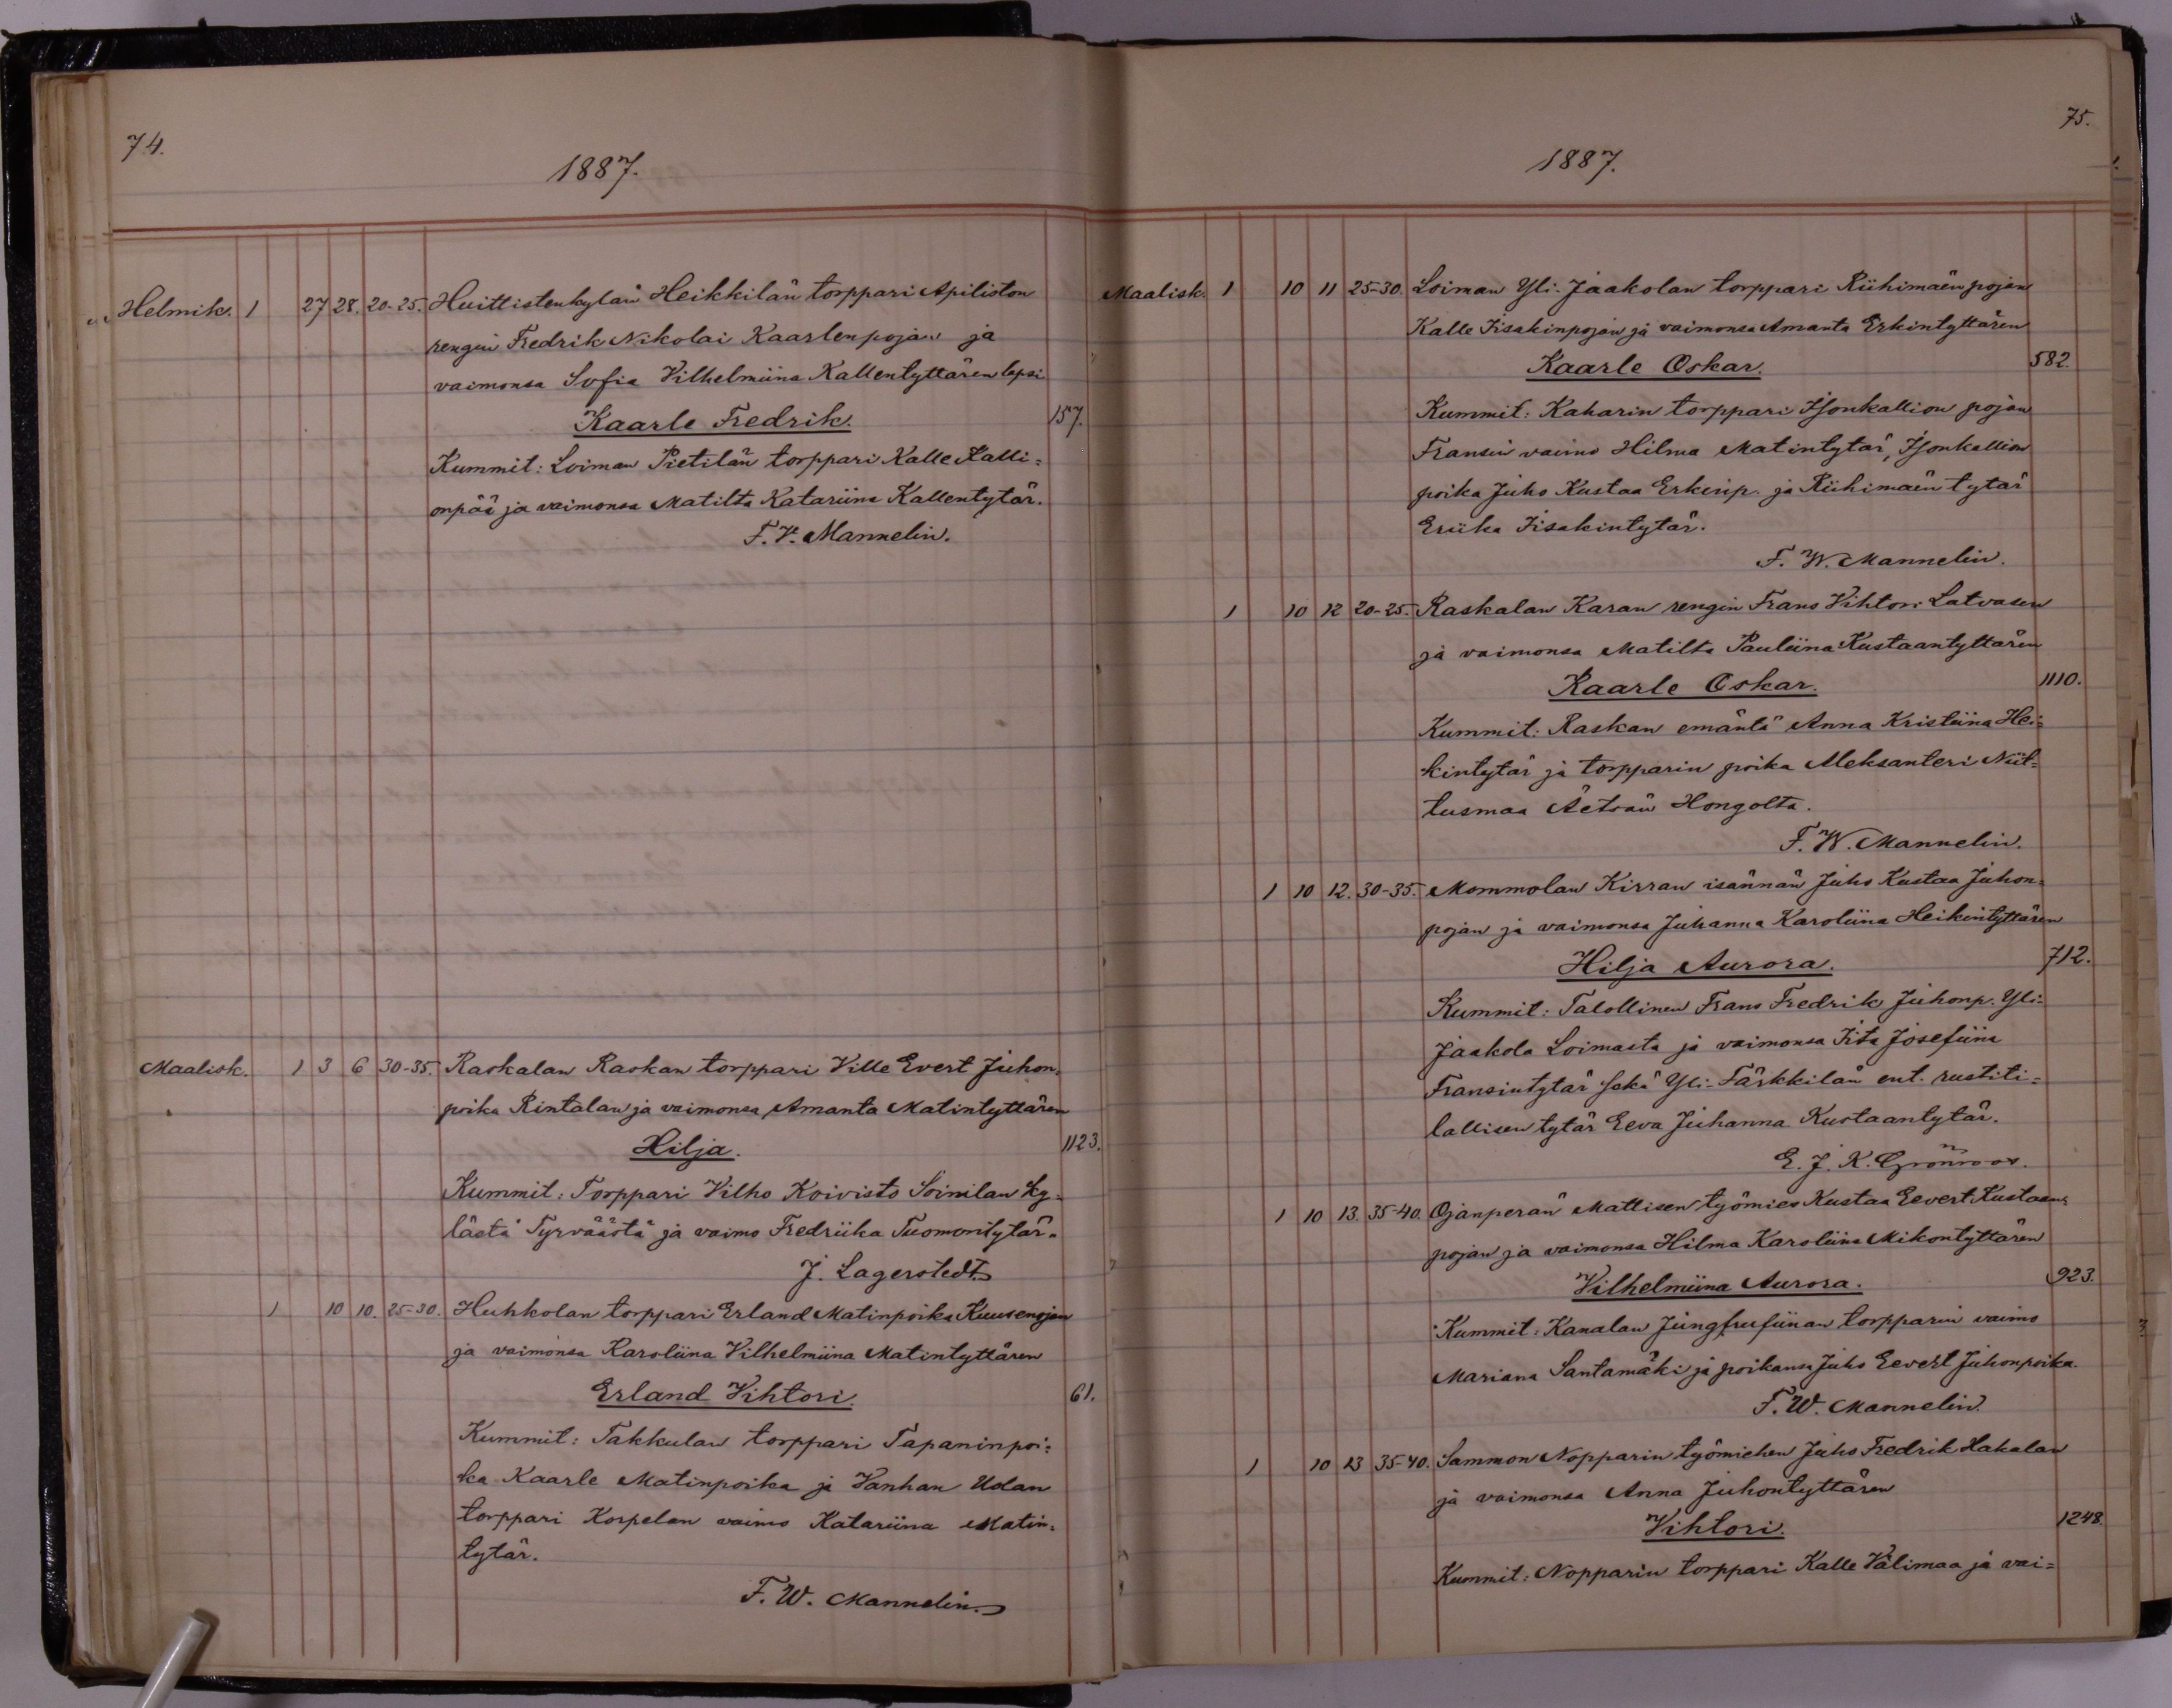 74.
1887.
Helmik. 1 27 28. 20-25. Huittistenkylän Heikkilän torppari Apiliston
rengin Fredrik Nikolai Kaarlenpojan ja
vaimonsa Sofia Vilhelmiina Kallentyttären lapsi
Kaarle Fredrik. 157.
Kummit: Loiman Pietilän torppari Kalle Kalli=
onpää ja vaimonsa Matilta Katariina Kallentytär.
F. V. Mannelin.
Maalisk. 1 3 6 30-35. Raskalan Raskan torppari Ville Evert Juhon=
poika Rintalan ja vaimonsa Amanta Matintyttären
Hilja. 1123.
Kummit: Torppari Vilho Koivisto Soinilan ky=
lästä Tyrväästä ja vaimo Fredriika Tuomontytär.
J. Lagerstedt.
1 10 10. 25-30. Huhkolan torppari Erland Matinpoika Kuusenojan
ja vaimonsa Karoliina Vilhelmiina Matintyttären
Erland Vihtori. 61.
Kummit: Takkulan torppari Tapaninpoi=
ka Kaarle Matinpoika ja Vanhan Udan
torppari Korpelan vaimo Katariina Matin=
tytär.
F. W. Mannelin.
75.
1887.
Maalisk. 1 10 11 25-30. Loiman Yli-Jaakolan torppari Riihimäen pojan
Kalle Iisakinpojan ja vaimonsa Amanta Erkintyttären
Kaarle Oskar. 582.
Kummit: Kaharin torppari Isonkallion pojan
Fransin vaimo Hilma Matintytär, Isonkallion
poika Juho Kustaa Erkinp. ja Riihimäen tytär
Eriika Iisakintytär.
F. W. Mannelin.
1 10 12 20-25. Raskalan Karan rengin Frans Vihtori Latvasen
ja vaimonsa Matilta Pauliina Kustaantyttären
Kaarle Oskar. 1110.
Kummit: Raskan emäntä Anna Kristiina Hei=
kintytär ja torpparin poika Aleksanteri Niit=
tusmaa Äetsän Hongolta.
F. W. Mannelin.
1 10 12. 30-35. Mommolan Kirran isännän Juho Kustaa Juhon=
pojan ja vaimonsa Juhanna Karoliina Heikintyttären
Hilja Aurora. 712.
Kummit: Talollinen Frans Fredrik Juhonp. Yli-
Jaakola Loimasta ja vaimonsa Iita Josefiina
Fransintytär sekä Yli-Färkkilän ent. rustiti=
lallisen tytär Eeva Juhanna Kustaantytär.
E. J. K. Grönroos.
1 10 13. 35-40. Ojanperän Mattisen työmies Kustaa Eevert Kustaan=
pojan ja vaimonsa Hilma Karoliina Mikontyttären
Vilhelmiina Aurora. 923.
Kummit: Kanalan Jungfrufiinan torpparin vaimo
Mariana Santamäki ja poikansa Juho Eevert Juhonpoika.
F. W. Mannelin.
1 10 13 35-40. Sammon Nopparin työmiehen Juho Fredrik Hakalan
ja vaimonsa Anna Juhontyttären
Vihtori. 1248.
Kummit: Nopparin torppari Kalle Välimaa ja vai=